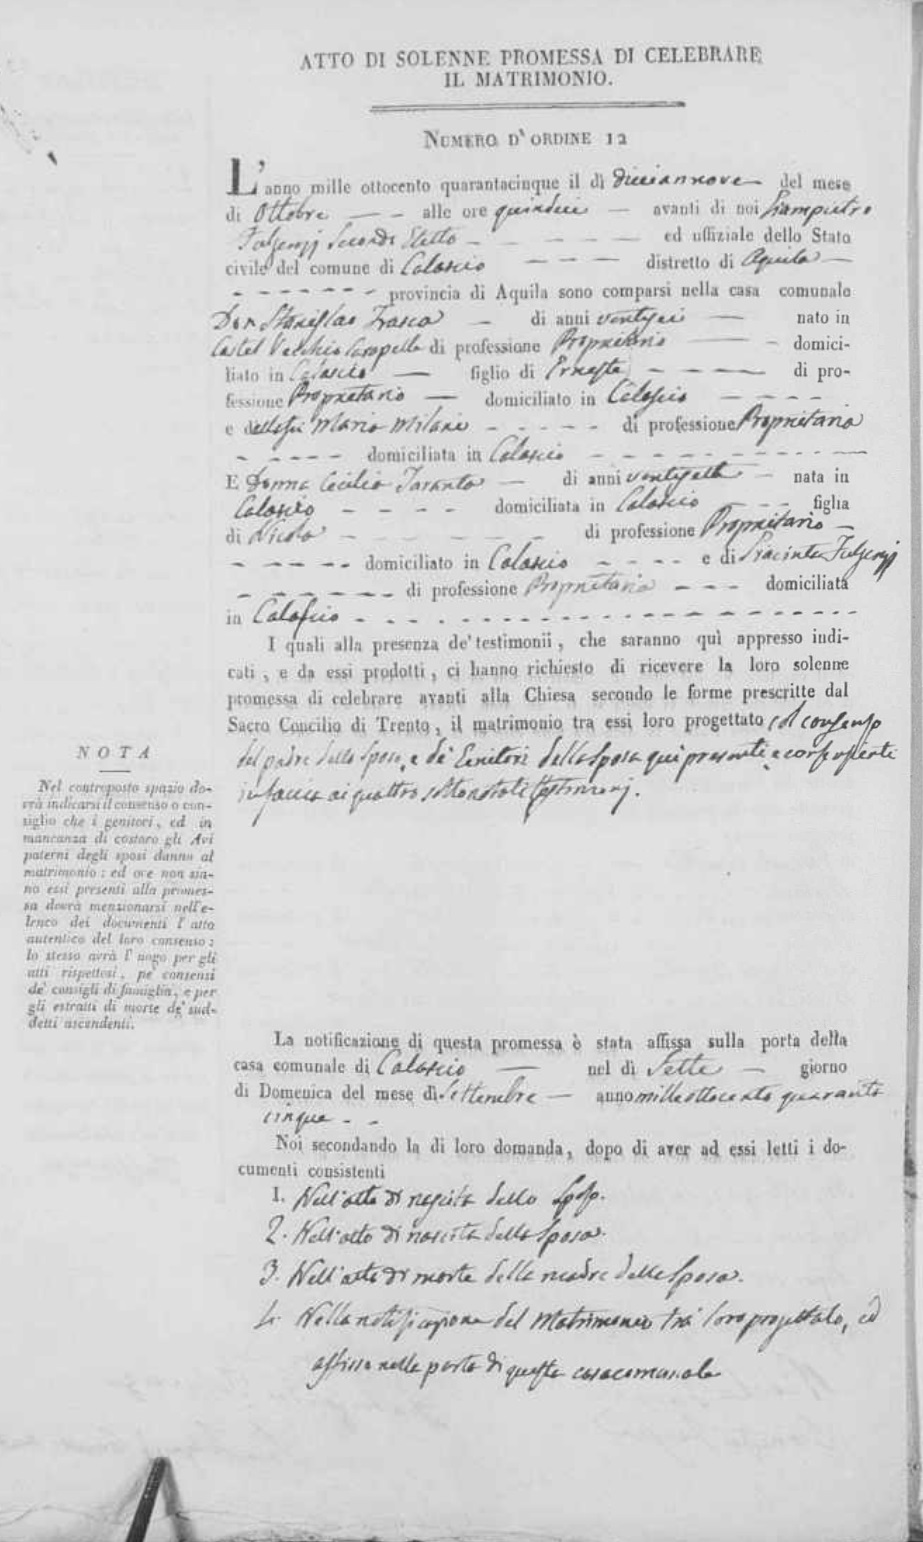 ATTO DI SOLENNE PROMESSA DI CELEBRARE
IL MATRIMONIO.
NUMERO D'ORDINE 12
L'anno mille ottocento quarantacinque il dì diciannove del mese
di Ottobre alle ore quindici avanti di noi Giampietro
Fulgenzj Secondo Eletto ed uffiziale dello Stato
civile del comune di Calascio distretto di Aquila
provincia di Aquila sono comparsi nella casa comunale
Don Stanislao Frasca di anni ventisei nato in
Castel Vecchio Carapelle di professione Proprietario domici-
liato in Calascio figlio di Ernesto di pro-
fessione Proprietario domiciliato in Calascio
e della fu Maria Milani di professione Proprietaria
domiciliata in Calascio
E Donna Cecilia Taranta di anni ventisette nata in
Calascio domiciliata in Calascio figlia
di Nicola di professione Proprietario
domiciliato in Calascio e di Giacinta Fulgenzj
di professione Proprietaria domiciliata
in Calascio
I quali alla presenza de' testimonii, che saranno quì appresso indi-
cati, e da essi prodotti, ci hanno richiesto di ricevere la loro solenne
promessa di celebrare avanti alla Chiesa secondo le forme prescritte dal
Sacro Concilio di Trento, il matrimonio tra essi loro progettato col consenso
del padre dello Sposo, e de' Genitori della Sposa quì presenti, e
in faccia ai quattro sottonotati testimonj.
NOTA
Nel controposto spazio do-
vrà indicarsi il consenso o con-
siglio che i genitori, ed in
mancanza di costoro gli Avi
paterni degli sposi danno al
matrimonio: ed ove non sia-
no essi presenti alla promes-
sa dovrà menzionarsi nell'e-
lenco dei documenti l'atto
autentico del loro consenso:
lo stesso avrà l'uogo per gli
atti rispettosi, pe' consensi
de' consigli di famiglia, e per
gli estratti di morte de' sud-
detti ascendenti.
La notificazione di questa promessa è stata affissa sulla porta della
casa comunale di Calascio nel dì Sette giorno
di Domenica del mese di Settembre anno mille ottocento quaranta
cinque
Noi secondando la di loro domanda, dopo di aver ad essi letti i do-
cumenti consistenti
1. Nell'atto di nascita dello Sposo.
2. Nell'atto di nascita della Sposa.
3. Nell'atto di morte della madre dello Sposo.
4. Nella notificazione del Matrimonio tra loro progettato, ed
affissa nella porta di questa casa comunale